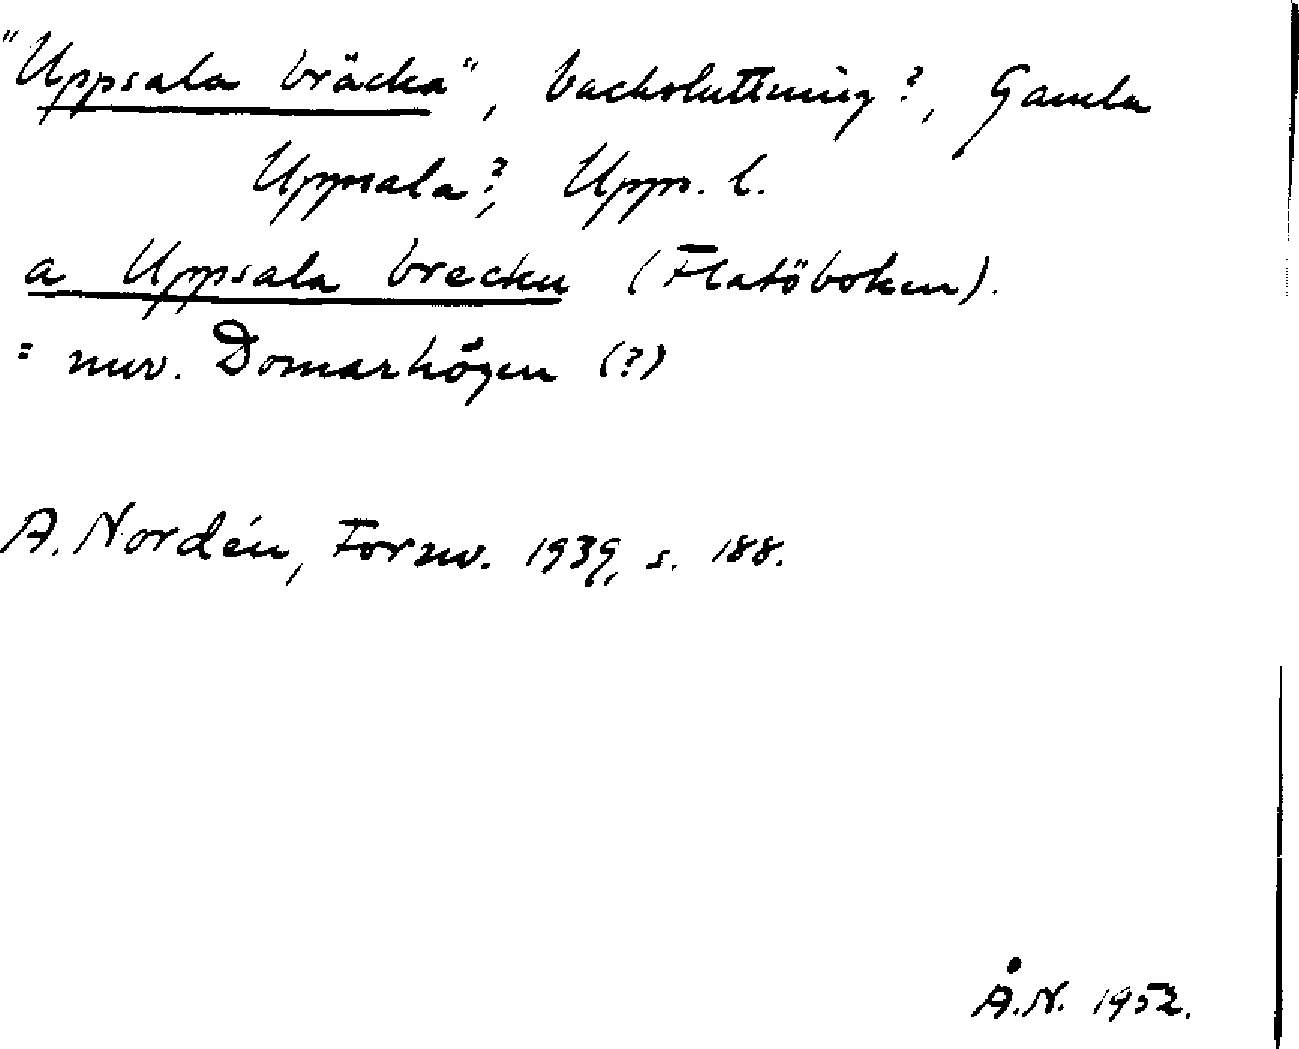 "Uppsala bräcka", backsluttning?, Gamla
Uppsala?, Upps. l.
a Uppsala brecku (Flatöboken).
= nuv. Domarhögen (?)
A. Nordén, Fornv. 1939, s. 188.
Å.N. 1952.